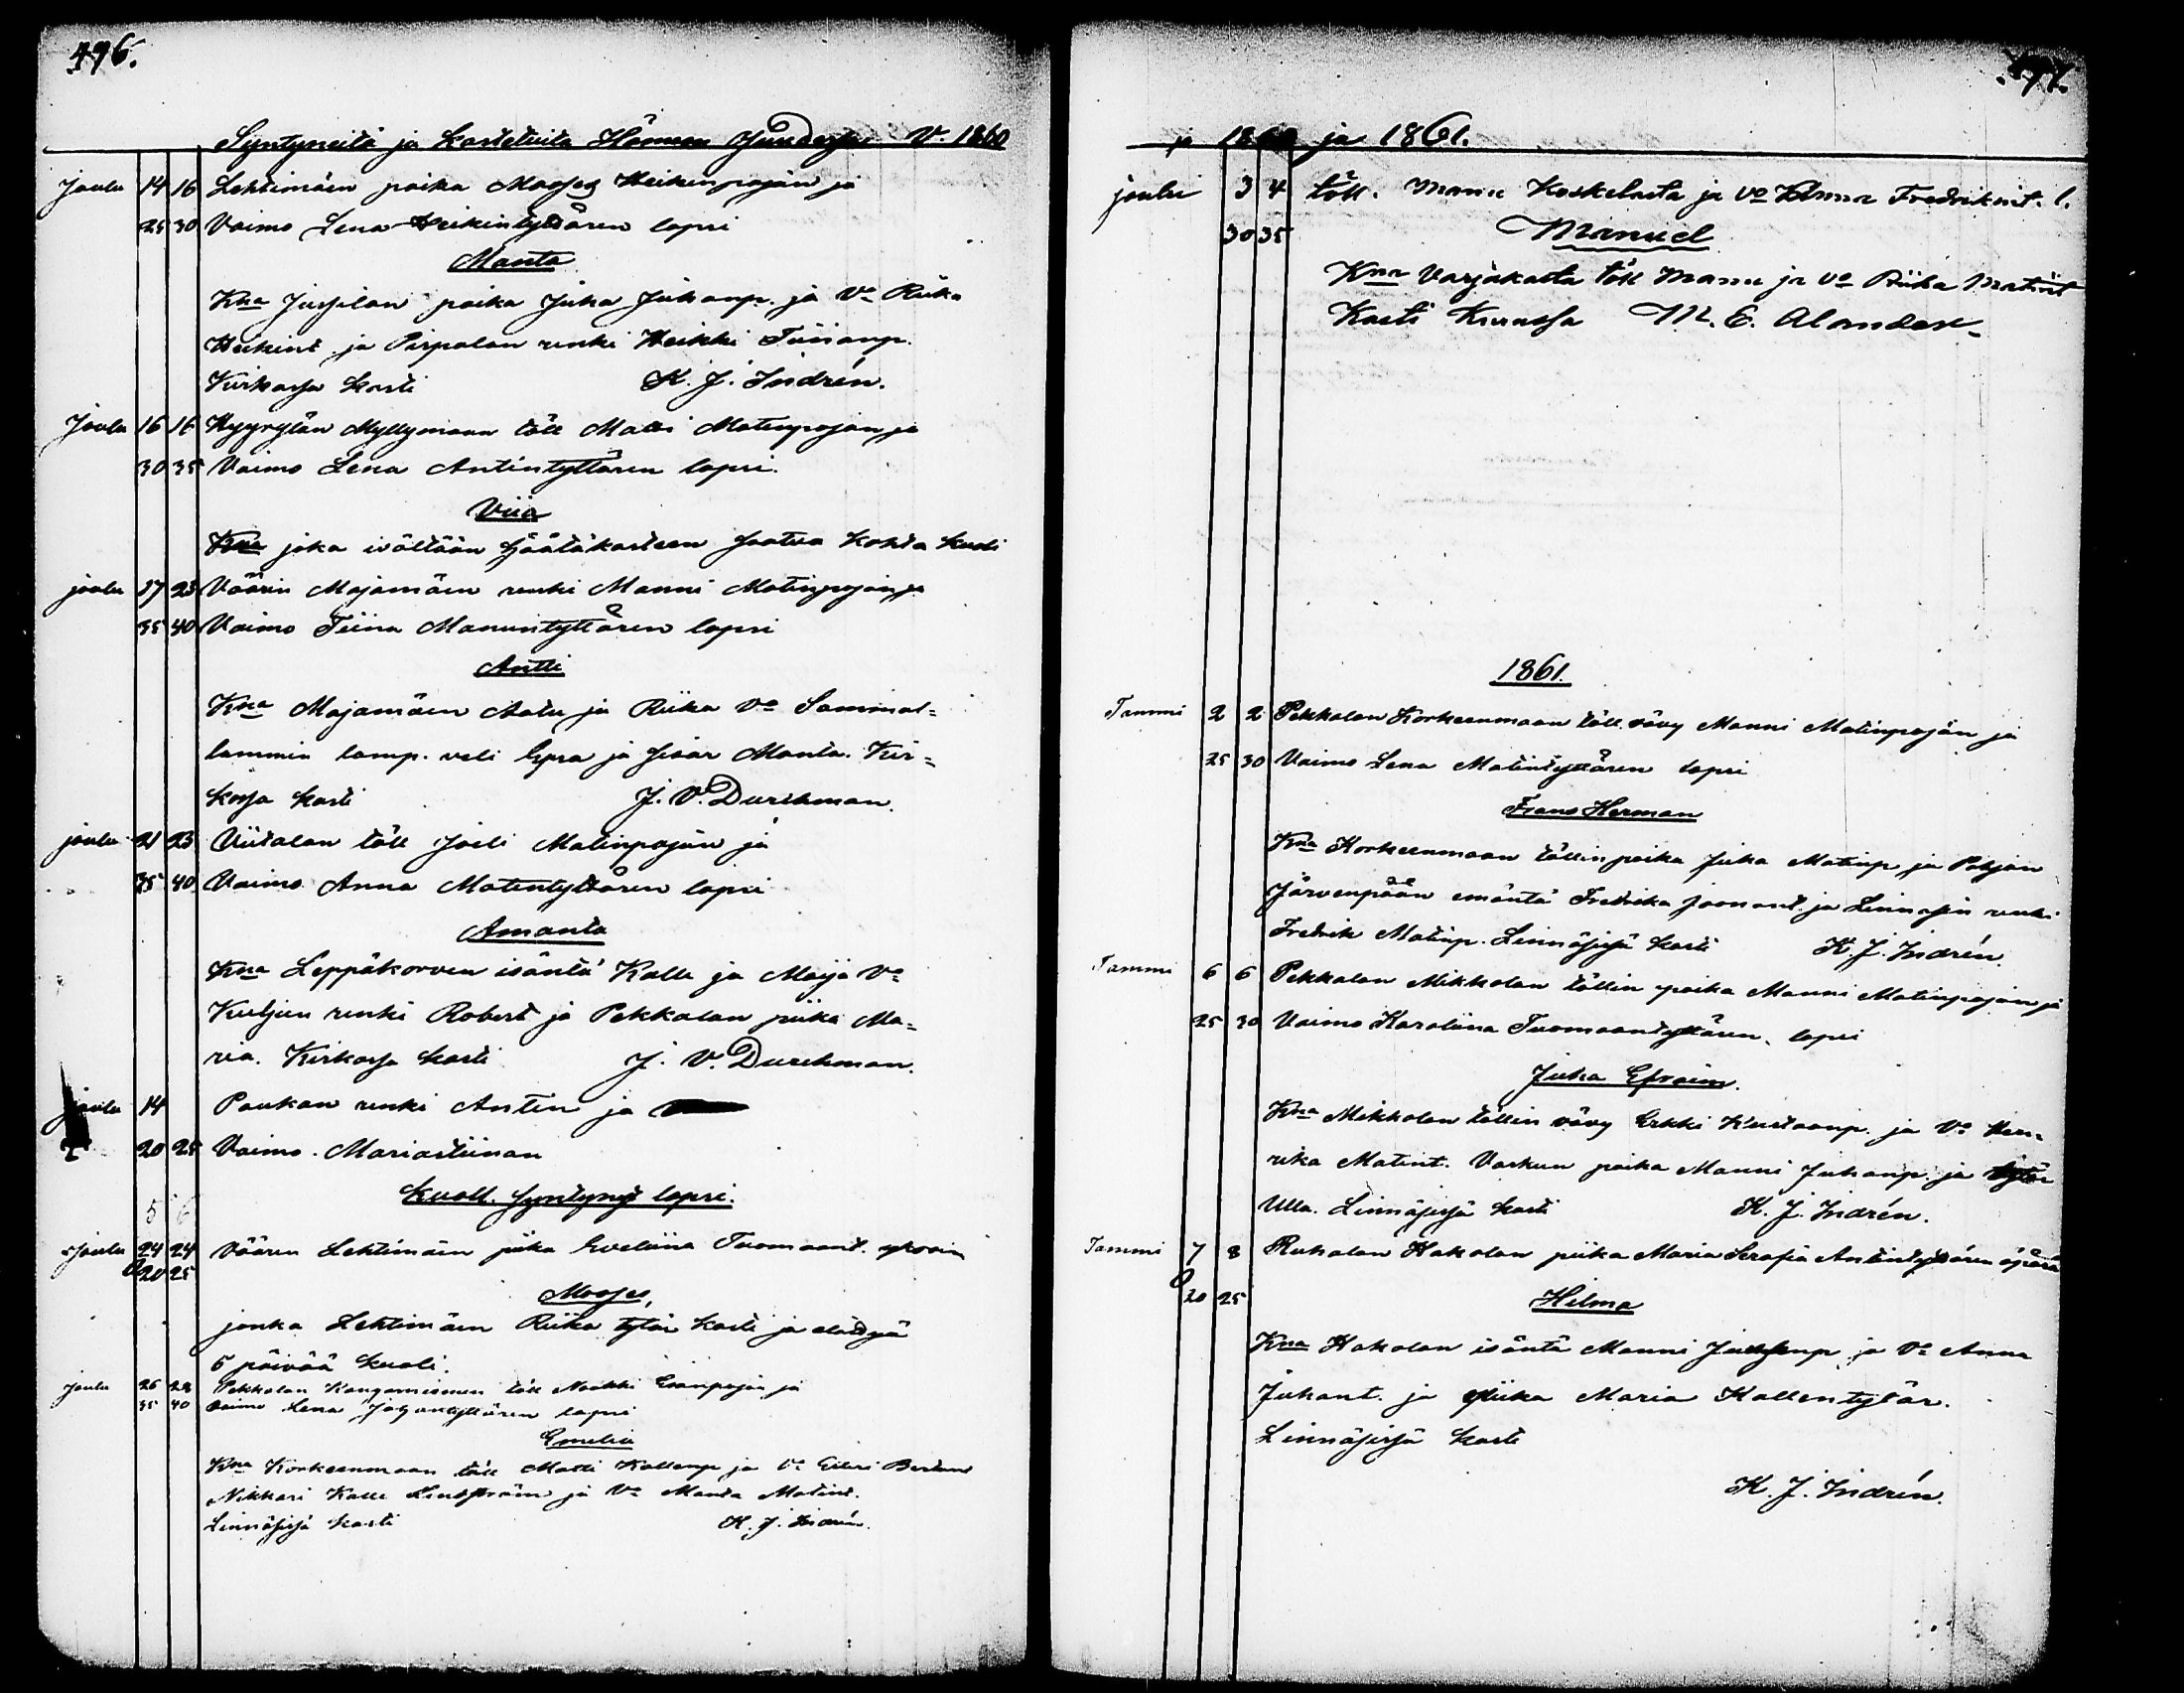 496.
Syntyneitä ja kastetuita Hämeen V. 1860
Joulu 14 16 Lehtimäen poika Mooses Heikinpojan ja
25 30 Vaimo Lena Heikintyttären lapsi
Manta
Kna Jussilan poika Juha Juhanp. ja Va Riika
Heikint ja Pirpalan renki Heikki
Kirkossa kasti K. J. Indrén.
Joulu 16 16 Hyyrylän Myllymaan töll Matti Matinpojan ja
30 35 Vaimo Lena Antintyttären lapsi.
Viia
Kna joka häätäkasteen saatua kohta kuoli
joulu 17 23 Väärin Majamäen renki Manni Matinpojan ja
35 40 Vaimo Tiina Manuntyttären lapsi
Antti
Kna Majamäen Aatu ja Riika Va Sammal=
lammin lamp. veli Epra ja sisar Manta. Kir=
kossa kasti J. V. Durchman.
joulu 21 23 Viitalan töll Joeli Matinpojan ja
35 40 Vaimo Anna Matintyttären lapsi
Amanta
Kna Leppäkorven isäntä Kalle ja Maija Va
Kuljun renki Robert ja Pekkalan piika Ma=
ria. Kirkossa kasti J. V. Durchman.
joulu 14 Paukan renki Antin ja
20 25 Vaimo Mariastiinan
Kuoll. syntynyt lapsi.
5 6
Joulu 24 24 Väären Lehtimäen piika Eveliina Tuomaant.
20 25
Mooses,
jonka Lehtimäen Riika tytär kasti ja elättyä
5 päivää kuoli.
Joulu 26 28 Pekkolan Kangasniemen töll Heikki ja
35 40 Vaimo Lena lapsi
Emelia
Kna Korkeenmaan töll Matti Kallenp ja Va
Nikkari Kalle Lindström ja Va Manta Matint.
Linnäsissä kasti K. J. Indrén.
497.
ja 1860 ja 1861.
joulu 3 4 töll. Manu Koskelasta ja Va Fredrikint. l.
30 35 Manuel
Kna Varjakatta töll Manu ja Va Riika Matint
Kasti Kuussa M. E. Alander
1861.
Tammi 2 2 Pekkolan Korkeenmaan töll. vävy Manni Matinpojan ja
25 30 Vaimo Lena Matintyttären lapsi
Frans Herman
Kna Korkeenmaan töllin poika Juha Matinp ja Pohjan
Järvenpään emäntä Fredrika Joonant. ja renki
Fredrik Matinp. Linnäsissä kasti K. J. Indrén.
Tammi 6 6 Pekkolan Mikkolan töllin poika Manni Matinpojan ja
25 30 Vaimo Karoliina Tuomaantyttären lapsi
Juha Efraim.
Kna Mikkolan töllin vävy Erkki Kustaanp. ja Va Hen=
rika Matint. Varkun poika Manni Juhanp. ja tytär
Ulla. Linnäsissä kasti K. J. Indrén.
Tammi 7 8 Ruhalan Hakolan piika Maria Serafia Antintyttären äpärä
20 25 Hilma
Kna Hakolan isäntä Manni ja Va Anna
Juhant. ja piika Maria Kallentytär.
Linnäsissä kasti
K. J. Indrén.